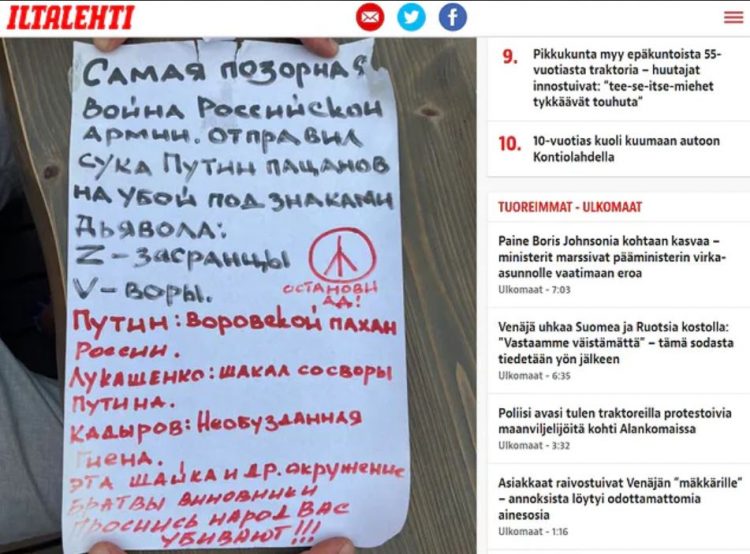 ILTALEHTI
Самая позорная
война Российской
армии. отправил
сука Путин пацанов
на убой под знаками
дьявола:
Z – засранцы
V – воры.
останови
ад!
Путин: воровской пахан
России.
Лукашенко: шакал со своры
Путина.
Кадыров: Необузданная
гиена.
эта шайка и др. окружение
братвы виновники
проснись народ вас
убивают!!!
9. Pikkukunta myy epäkuntoista 55-
vuotiasta traktoria – huutajat
innostuivat: "tee-se-itse-miehet
tykkäävät touhuta"
10. 10-vuotias kuoli kuumaan autoon
Kontiolahdella
TUOREIMMAT - ULKOMAAT
Paine Boris Johnsonia kohtaan kasvaa –
ministerit marssivat pääministerin virka-
asunnolle vaatimaan eroa
Ulkomaat - 7:03
Venäjä uhkaa Suomea ja Ruotsia kostolla:
"Vastaamme väistämättä" – tämä sodasta
tiedetään yön jälkeen
Ulkomaat - 6:35
Poliisi avasi tulen traktoreilla protestoivia
maanviljelijöitä kohti Alankomaissa
Ulkomaat - 3:32
Asiakkaat raivostuivat Venäjän "mäkkärille"
– annoksista löytyi odottamattomia
ainesosia
Ulkomaat - 1:16